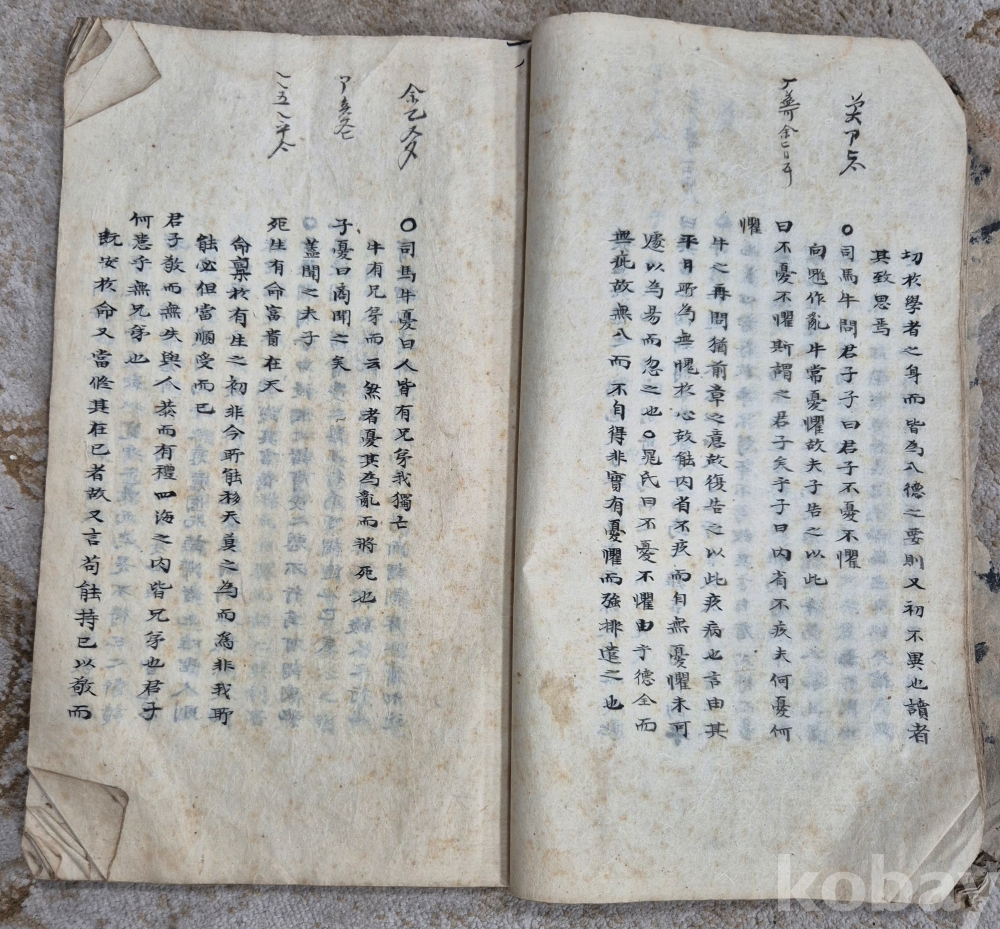 切於學者之身而皆為入德之要則又初不異也讀者
其致思焉
○司馬牛問君子子曰君子不憂不懼
向魋作亂牛常憂懼故夫子告之以此
曰不憂不懼斯謂之君子矣乎子曰內省不疚夫何憂何
懼
牛之再問猶前章之意故復告之以此疚病也言由其
平日所為無愧於心故能內省不疚而自無憂懼未可
遽以為易而忽之也○晁氏曰不憂不懼由乎德全而
無疵故無入而不自得非實有憂懼而強排遣之也
○司馬牛憂曰人皆有兄弟我獨亡
牛有兄弟而云然者憂其為亂而將死也
子憂曰商聞之矣
○蓋聞之夫子
死生有命富貴在天
命稟於有生之初非今所能移天莫之為而為非我所
能必但當順受而已
君子敬而無失與人恭而有禮四海之內皆兄弟也君子
何患乎無兄弟也
既安於命又當修其在己者故又言苟能持己以敬而
kobay